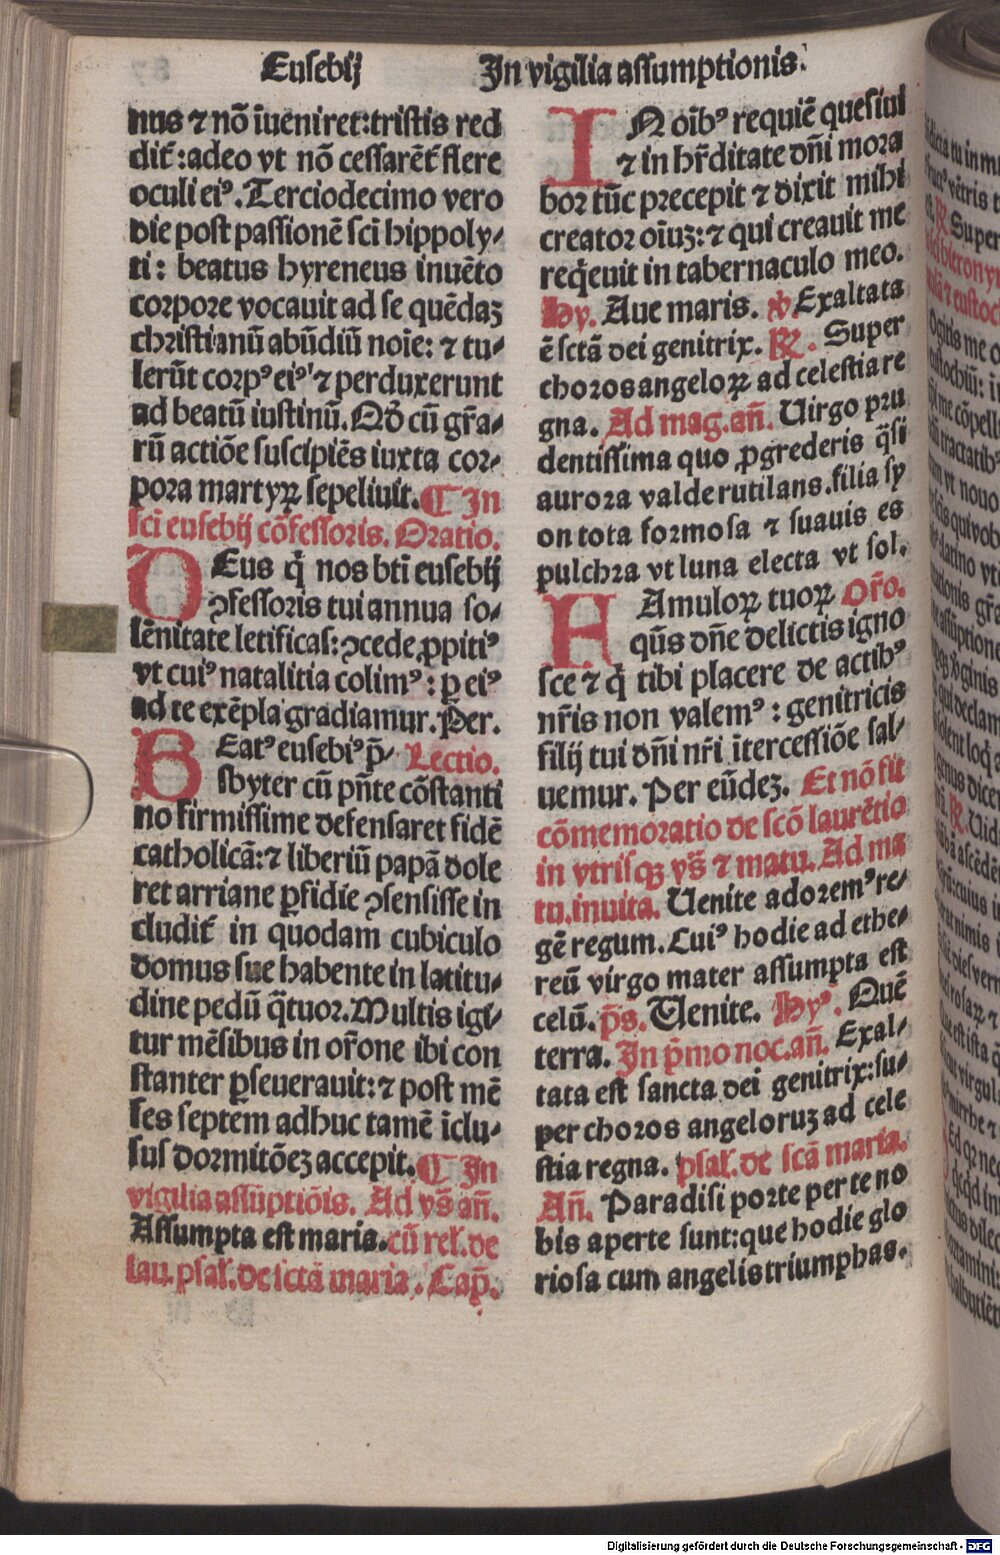 Eusebij
In vigilia assumptionis.
nus ⁊ nō īueniret: tristis red
dit᷑: adeo vt nō cessarēt᷑ flere
oculi eiꝰ. Terciodecimo vero
die post passionē sc̄i hippoly-
ti: beatus hyreneus inuēto
corpore vocauit ad se quēdaꝫ
christianū abūdiū noīe: ⁊ tu-
lerūt corpꝰ eiꝰ ⁊ perduxerunt
ad beatū iustinū. Qḋ cū gr̄a-
rū actiōe suscipiēs iuxta cor-
pora martyꝝ sepeliuit. ¶ In
sc̄i eusebij cōfessoris. Oratio.
DEus q̄ nos bt̄i eusebij
ꝯfessoris tui annua so-
lēnitate letificas: ꝯcede ꝓpitiꝰ
vt cuiꝰ natalitia colimꝰ: ꝑ eiꝰ
ad te exēpla gradiamur. Per.
BEatꝰ eusebiꝰ p̄- Lectio.
sbyter cū pn̄te cōstanti
no firmissime defensaret fidē
catholicā: ⁊ liberiū papā dole
ret arriane ꝑfidie ꝯsensisse in
cludit᷑ in quodam cubiculo
domus sue habente in latitu-
dine pedū q̄tuor. Multis igi-
tur mēsibus in or̄one ibi con
stanter ꝑseuerauit: ⁊ post mē
ses septem adhuc tamē īclu-
sus dormitōeꝫ accepit. ¶ In
vigilia assūptiōis. Ad vs̄ an̄.
Assumpta est maria. cū rel̄. de
lau. psal̄. de sctā maria. Cap̄.
IN oībꝰ requiē quesiui
⁊ in hr̄ditate dn̄i mora
bor tūc precepit ⁊ dixit mihi
creator oīuꝫ: ⁊ qui creauit me
req̄euit in tabernaculo meo.
Hy. Aue maris. ℣ Exaltata
ē sctā dei genitrix. ℟. Super
choros angeloꝝ ad celestia re
gna. Ad mag. an̄. Uirgo pru
dentissima quo ꝓgrederis q̄si
aurora valde rutilans. filia sy
on tota formosa ⁊ suauis es
pulchra vt luna electa vt sol.
FAmuloꝝ tuoꝝ Or̄o.
qūs dn̄e delictis igno
sce ⁊ q̄ tibi placere de actibꝰ
nr̄is non valemꝰ: genitricis
filij tui dn̄i nr̄i ītercessiōe sal-
uemur. Per eūdeꝫ. Et nō fit
cōmemoratio de scō laurētio
in vtrisqꝫ vs̄ ⁊ matu. Ad ma
tu. inuita. Uenite adoremꝰ re-
gē regum. Cuiꝰ hodie ad ethe-
reū virgo mater assumpta est
celū. ps̄. Uenite. Hyꝰ. Quē
terra. In p̄mo noc. an̄. Exal-
tata est sancta dei genitrix: su-
per choros angeloruꝫ ad cele
stia regna. psal̄. de scā maria.
An̄. Paradisi porte per te no
bis aperte sunt: que hodie glo
riosa cum angelis triumphas.
Digitalisierung gefördert durch die Deutsche Forschungsgemeinschaft - DFG